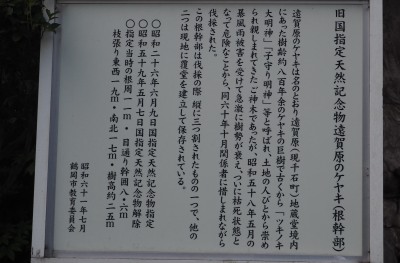 旧国指定天然記念物遠賀原のケヤキ(根幹部)
遠賀原のケヤキは名のとおり遠賀原(現千石町)地蔵堂境内
にあった樹齢約八百年余のケヤキの巨樹で古くから「ツキノキ
大明神」「子守り明神」等と呼ばれ、土地の人びとから崇め
られ親しまれてきたご神木であったが、昭和五十八年五月の
暴風雨被害を受けて急激に樹勢が衰え、ついに枯死状態と
なって危険なことから、同六十年十月関係者に惜しまれながら
伐採された。
この根幹部は伐採の際、縦に三つ割されたものの一つで、他の
二つは現地に覆堂を建立して保存されている。
○昭和二十六年六月九日国指定天然記念物指定
○昭和五十九年五月七日国指定天然記念物解除
○指定当時の根周一一m・目通り幹囲八・六m
枝張り東西一九m・南北一七m・樹高約二五m
昭和六十一年七月
鶴岡市教育委員会